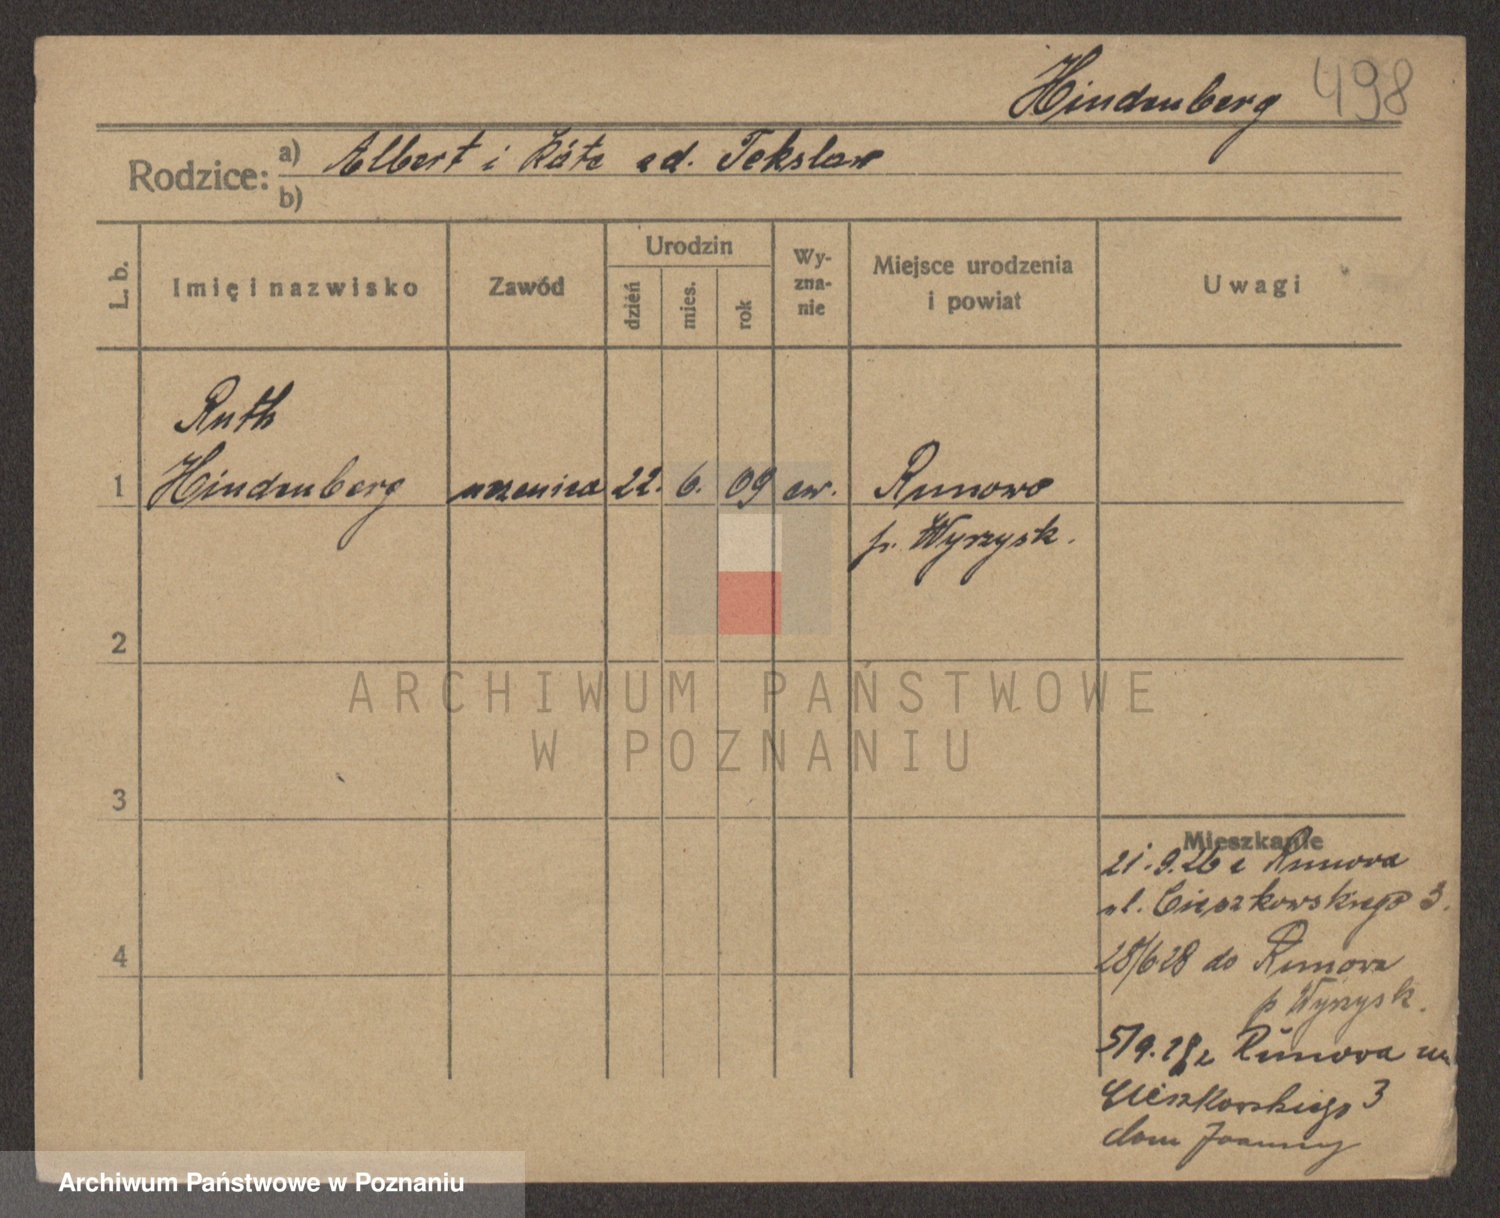 Hindenberg 498
Rodzice: a) Albert i Käte
b)
L. b.
Imię i nazwisko
Zawód
Urodzin
dzień
mies.
rok
Wy-
zna-
nie
Miejsce urodzenia
i powiat
Uwagi
Ruth
1 Hindenberg uczenica 22. 6. 09 ew. Runowo
p. Wyrzysk.
2
3
4
Mieszkanie
21.9.26 z Runowa
ul. Cieszkowskiego 3.
28/6 28 do Runowa
p Wyrzysk.
5/9.28 z Runowa
Cieszkowskiego 3
dom Joanny
ARCHIWUM PAŃSTWOWE
W POZNANIU
Archiwum Państwowe w Poznaniu